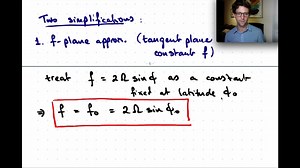 Two simplifications :
1. f-plane approx. (tangent plane
constant f)
treat f = 2 Ω sin ϕ as a constant
fixed at latitude ϕ₀
⇒ f = f₀ = 2 Ω sin ϕ₀